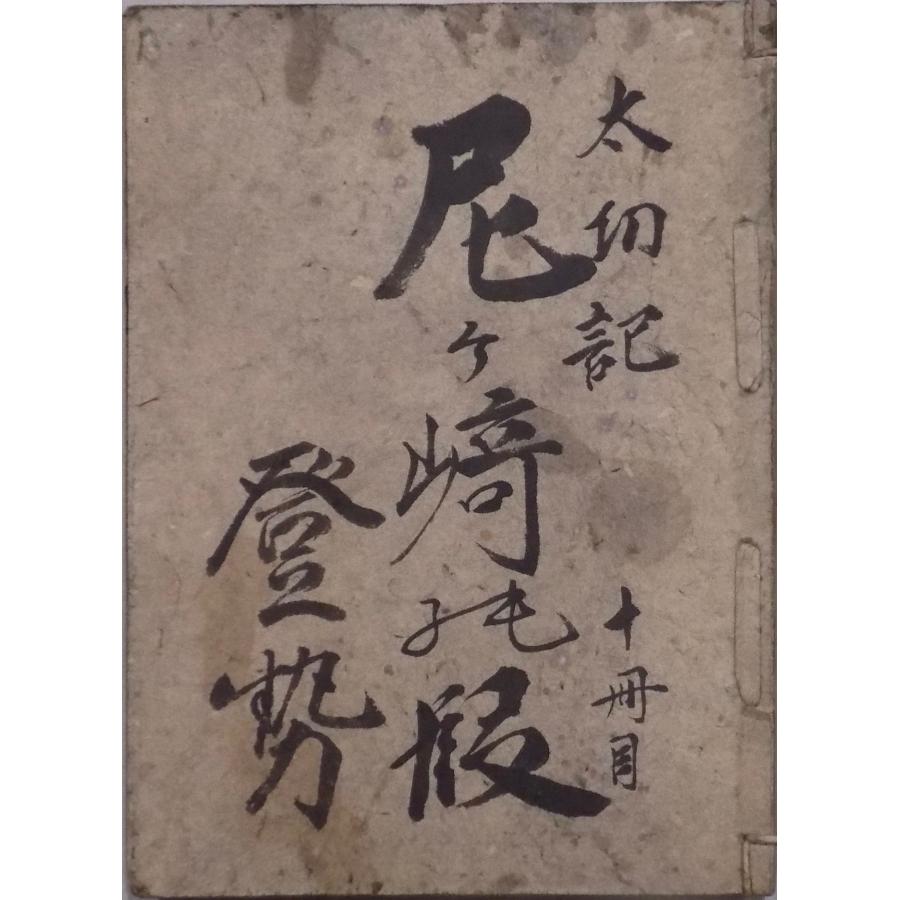 太功記 十冊目
尼ヶ﨑の段
登勢